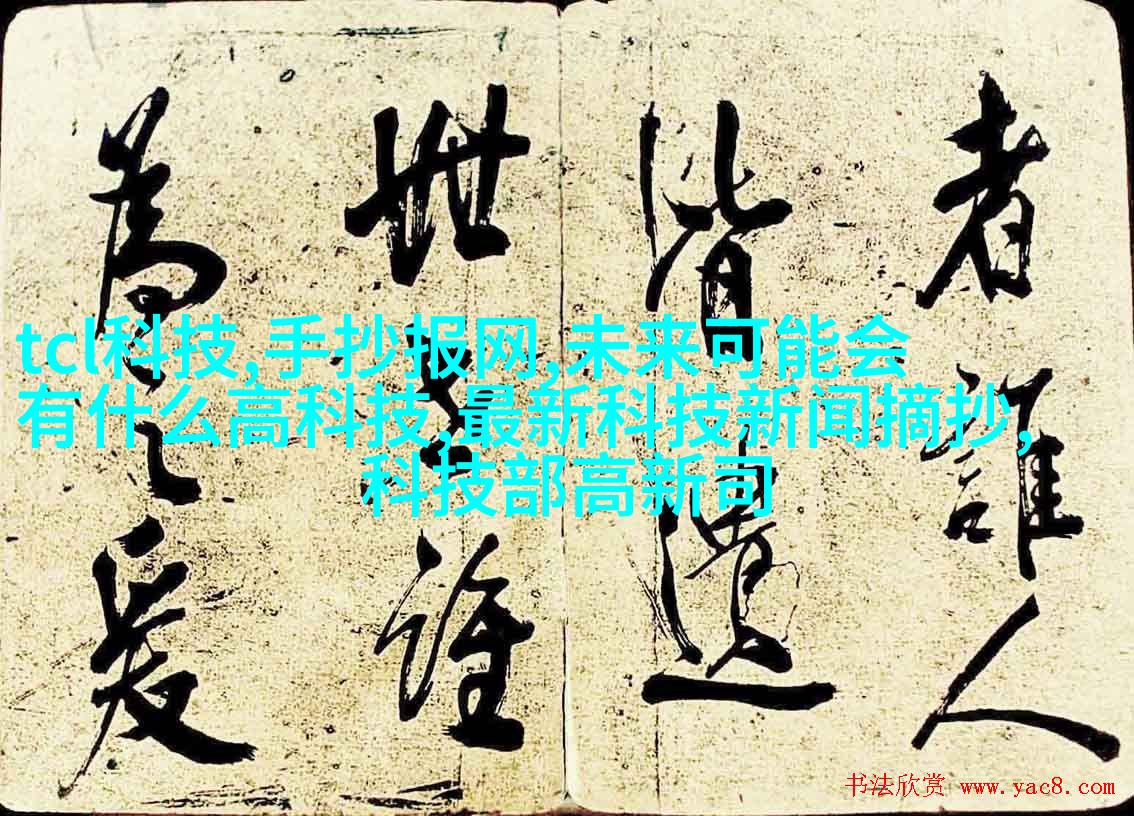 tcl科技,手抄报网,未来可能会
有什么高科技,最新科技新闻摘抄,
科技部高新司
者誰人
皆遺
世誰
為之
书法欣赏 www.yac8.com